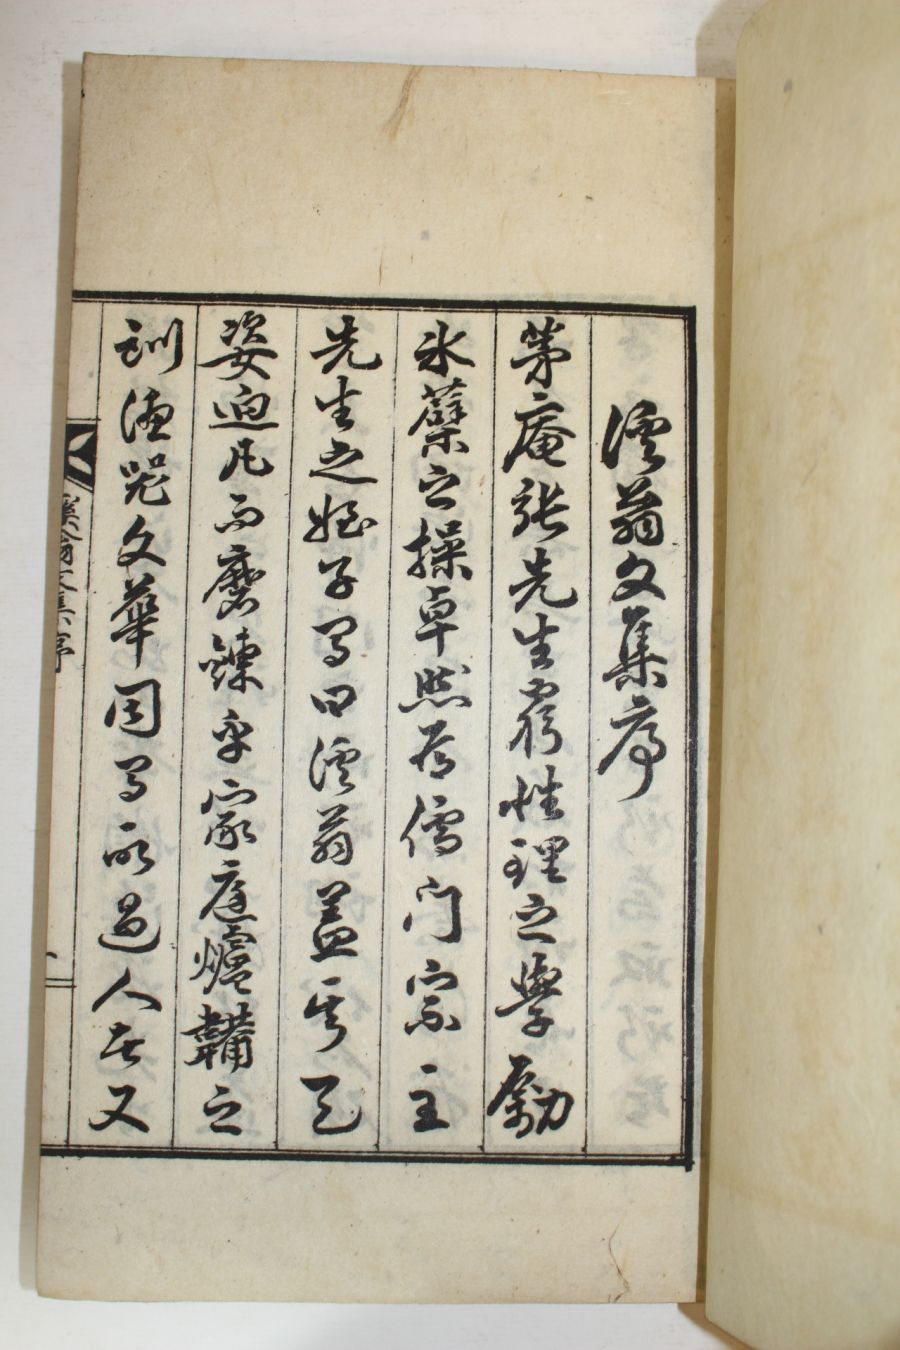 溪翁文集序
茅庵張先生窮性理之學勵
氷蘗之操卓然爲儒門宗主
先生之姪子有曰溪翁蓋其天
姿逈凡而磨鍊乎家庭爐韛之
訓德器文華固有所過人者又
溪翁文集序
一